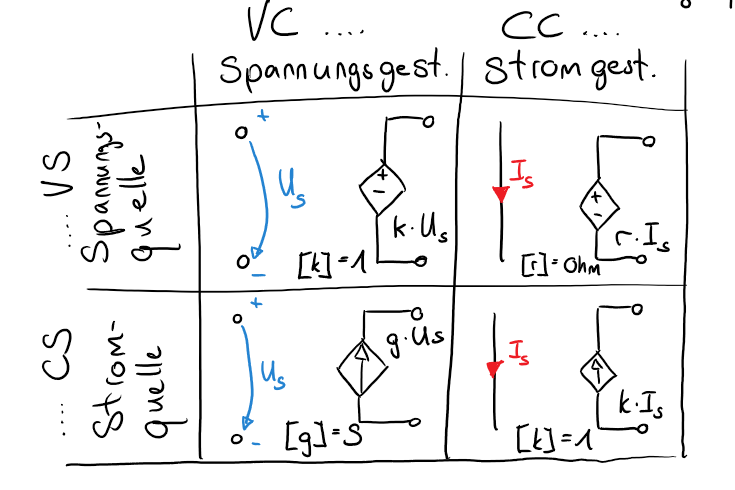 VC ....
CC ....
Spannungsgest.
Stromgest.
.... VS
Spannungs-
quelle
+
U_s
−
[k]=1
+
−
k·U_s
I_s
+
−
r·I_s
[r]=Ohm
.... CS
Strom-
quelle
+
U_s
−
g·U_s
[g]=S
I_s
k·I_s
[k]=1